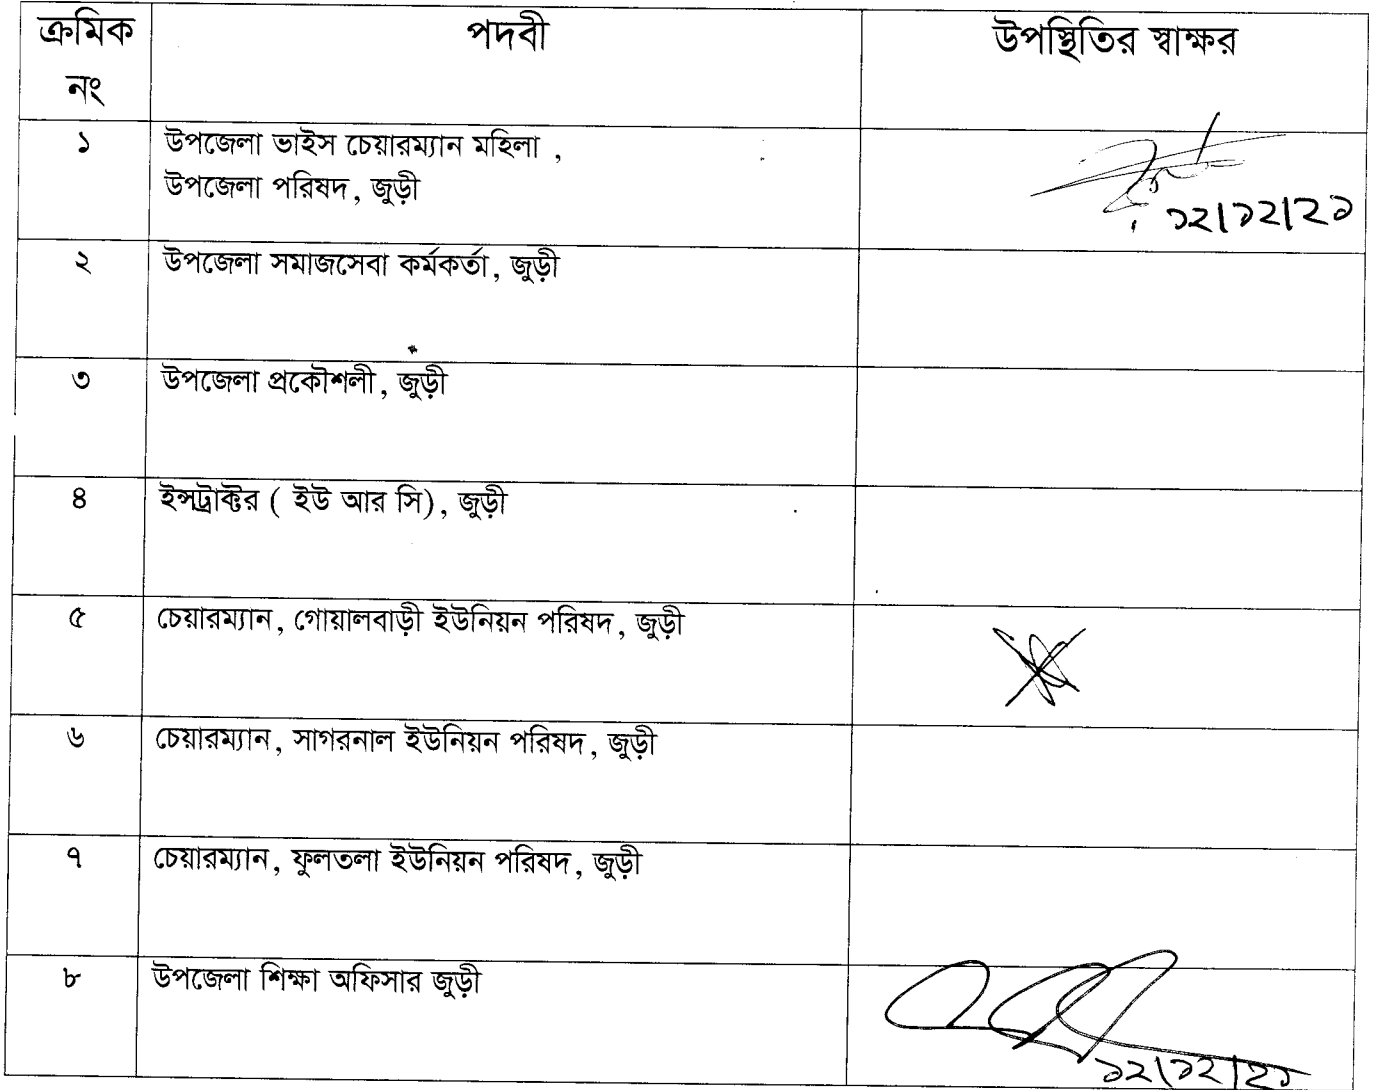 ক্রমিক
নং
পদবী
উপস্থিতির স্বাক্ষর
১
উপজেলা ভাইস চেয়ারম্যান মহিলা ,
উপজেলা পরিষদ, জুড়ী
১২/১২/২১
২
উপজেলা সমাজসেবা কর্মকর্তা, জুড়ী
৩
উপজেলা প্রকৌশলী, জুড়ী
৪
ইন্সট্রাক্টর ( ইউ আর সি), জুড়ী
৫
চেয়ারম্যান, গোয়ালবাড়ী ইউনিয়ন পরিষদ, জুড়ী
৬
চেয়ারম্যান, সাগরনাল ইউনিয়ন পরিষদ, জুড়ী
৭
চেয়ারম্যান, ফুলতলা ইউনিয়ন পরিষদ, জুড়ী
৮
উপজেলা শিক্ষা অফিসার জুড়ী
১২/১২/২১